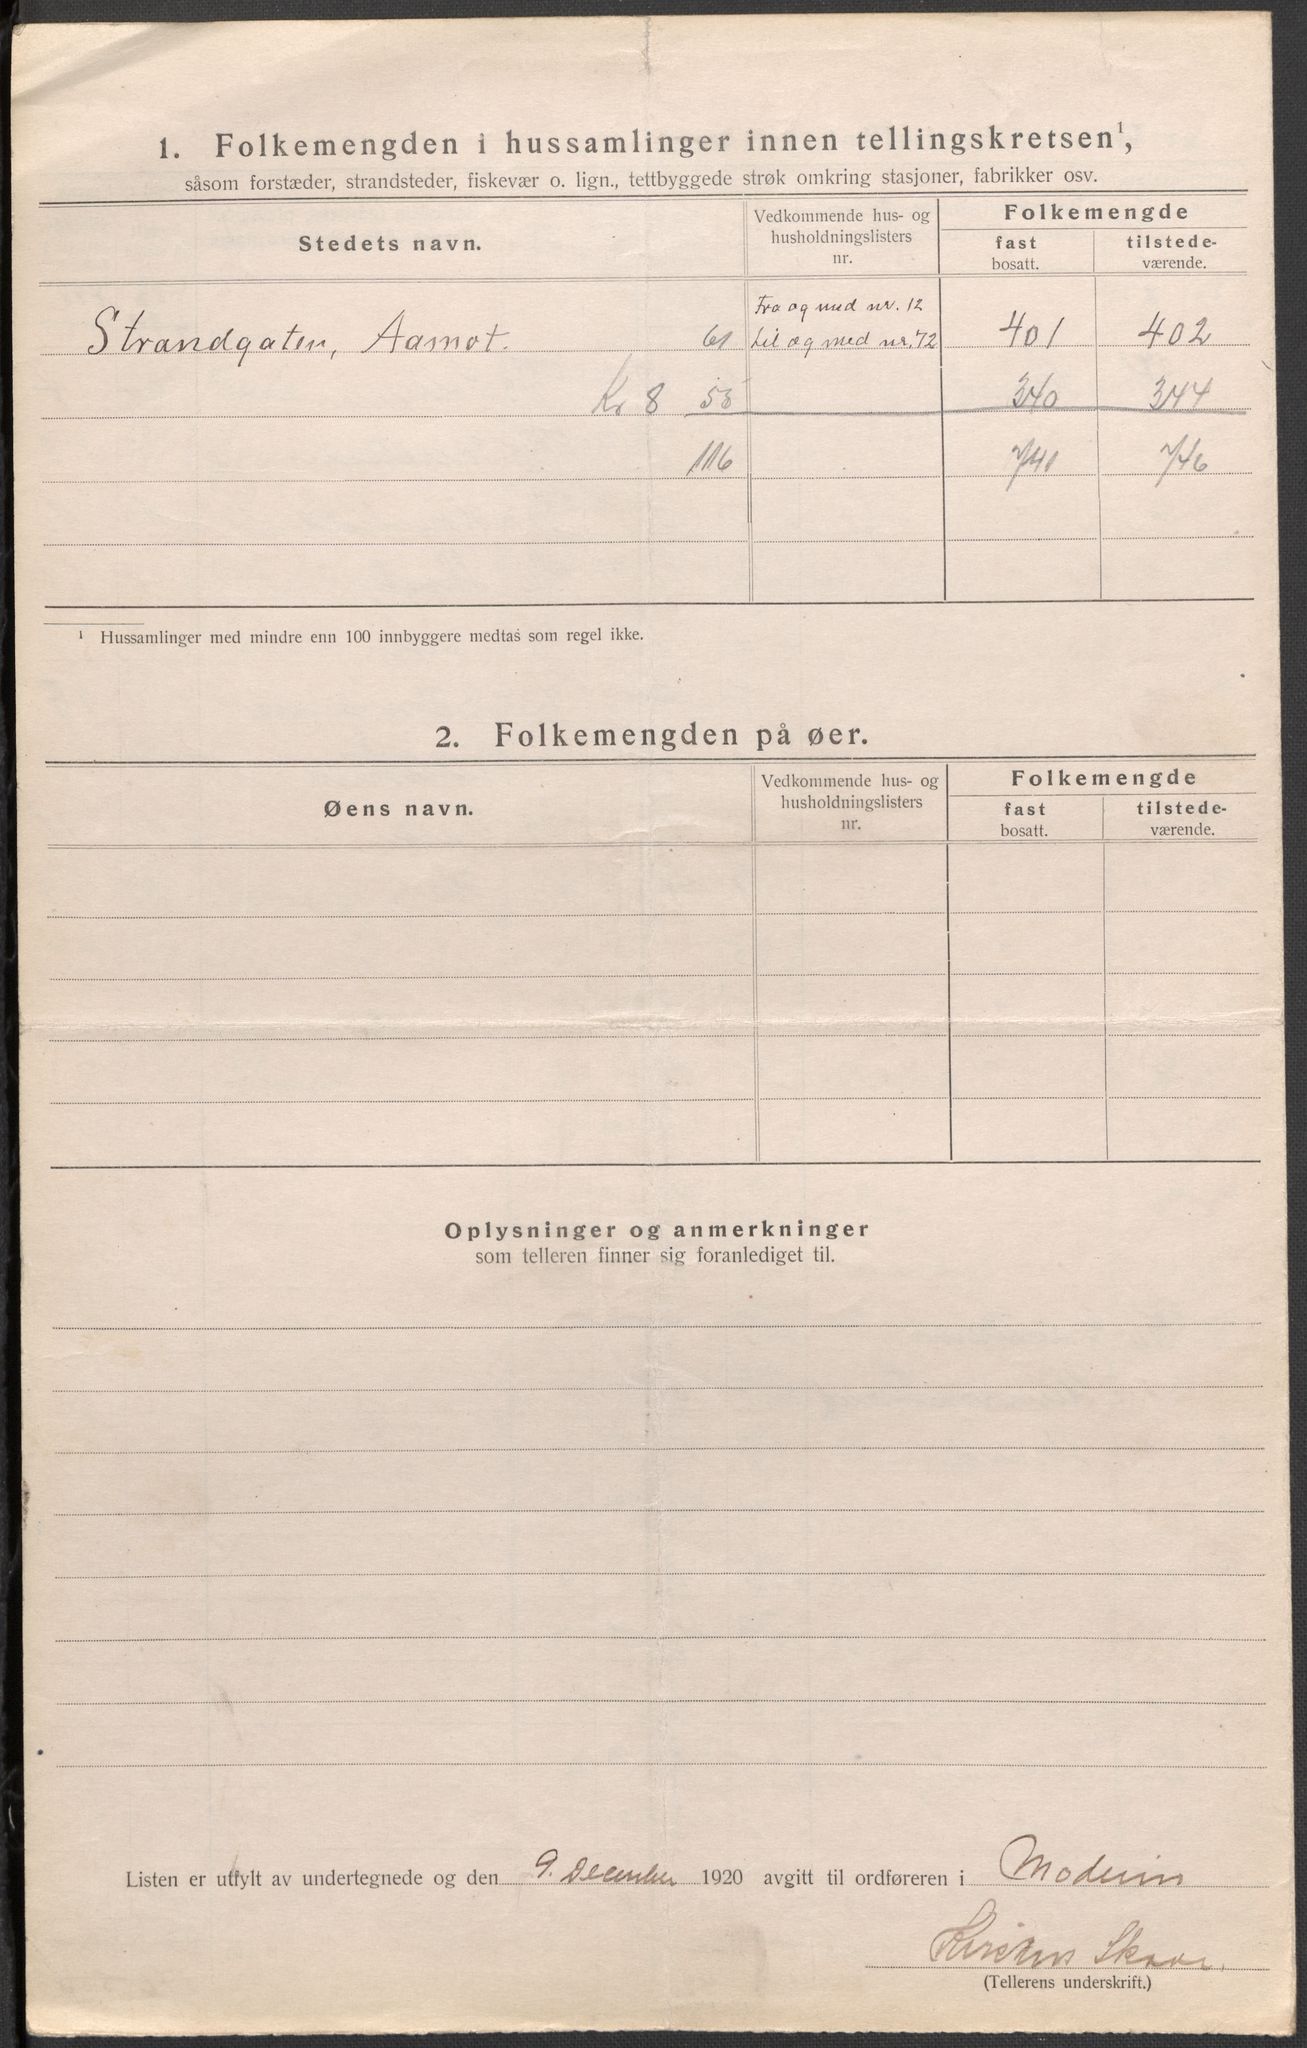 1. Folkemengden i hussamlinger innen tellingskretsen¹,
såsom forstæder, strandsteder, fiskevær o. lign., tettbyggede strøk omkring stasjoner, fabrikker osv.
Stedets navn.
Vedkommende hus- og husholdningslisters nr.
Folkemengde
fast bosatt.
tilstede-værende.
Fra og med nr. 12
Strandgaten, Aamot. 61 til og med nr. 72 401 402
Kr 8 55 340 344
116 741 746
¹ Hussamlinger med mindre enn 100 innbyggere medtas som regel ikke.
2. Folkemengden på øer.
Øens navn.
Vedkommende hus- og husholdningslisters nr.
Folkemengde
fast bosatt.
tilstede-værende.
Oplysninger og anmerkninger
som telleren finner sig foranlediget til.
Listen er utfylt av undertegnede og den 9. December 1920 avgitt til ordføreren i Modum
Skaar.
(Tellerens underskrift.)